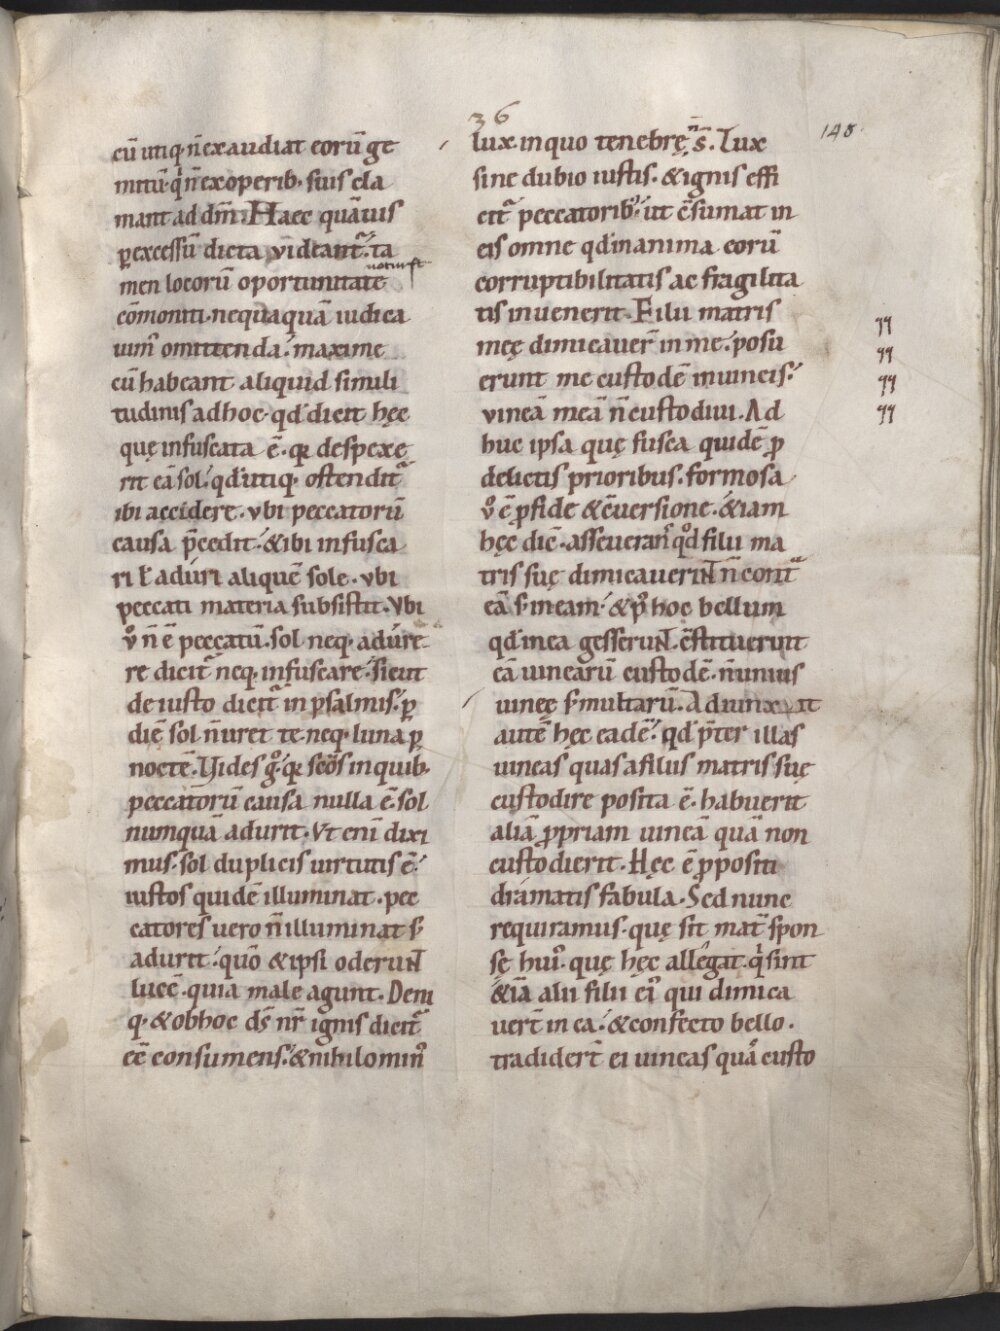 36
148
cū utiq; n̄ exaudiat eorū ge
mitū· q̇ n̄ ex operib; suis cla
mant ad dm̄. Haec quāuis
ꝑ excessū dicta videant᷑· ta
men locorū oportunitate
cōmoniti· nequaquā iudica
uim᷒ omittenda· maxime
cū habeant aliquid simili
tudinis ad hoc· qd̄ dicit hęc
quę infuscata ē· qꝛ despexe
rit eā sol· qd̄ utiq; ostendit᷑
ibi accidere· vbi peccatorū
causa p̄cedit· & ibi infusca
ri ł adúri aliquē sole· vbi
peccati materia subsistit. Vbi
v̊ n̄ ē peccatū· sol neq; adúre
re dicit᷑ neq; infuscare· sicut
de iusto dicit᷑ in psalmis· ꝑ
diē sol n̄ uret te· neq; luna ꝑ
noctē. Vides g̊· qꝛ scōs in quib;
peccatorū causa nulla ē· sol
numquā adurit. Vt enī dixi
mus· sol duplicis uirtutis ē·
iustos quidē illuminat· pec
catores uero n̄ illuminat s;
adurit· quō & ipsi oderunt
lucē· quia male agunt. Deni
q; & ob hoc ds̄ nr̄ ignis dicit᷑
eē consumens· & nihilomin᷒
lux· in quo tenebrę n̄ s̄. Lux
sine dubio iustis· & ignis effi
cit᷑ peccatorib;· ut c̄sumat in
eis omne qd̄ in anima eorū
corruptibilitatis ac fragilita
tis inuenerit. Filii matris
meę dimicauer̄ in me· posu
erunt me custodē in uineis·
vineā meā n̄ custodiui. Ad
huc ipsa quę fusca quidē ꝑ
delictis prioribus· formosa
v̊ ē ꝓ fide & c̄uersione· & iam
hęc diē· asseuerans qd̊ filii ma
tris suę dimicauerint n̄ cont᷑
eā s; in eam· & p᷒ hoc bellum
qd̄ in ea gesserunt· c̄stituerunt
eā uinearū custodē· n̄ unius
uineę s; multarū. Adiunxit
autē hęc eadē· qd̄ p̄ter illas
uineas quas a filiis matris suę
custodire posita ē· habuerit
aliā ꝓpriam uineā quā non
custodierit. Hęc ē ꝓpositi
drámatis fabula. Sed nunc
requiramus· quę sit mat᷑ spon
sę hui᷒· quę hęc allégat· q̇ sint
& iā alii filii ei᷒ qui dimica
uerī in ea· & confecto bello·
tradiderī ei uineas quā custo